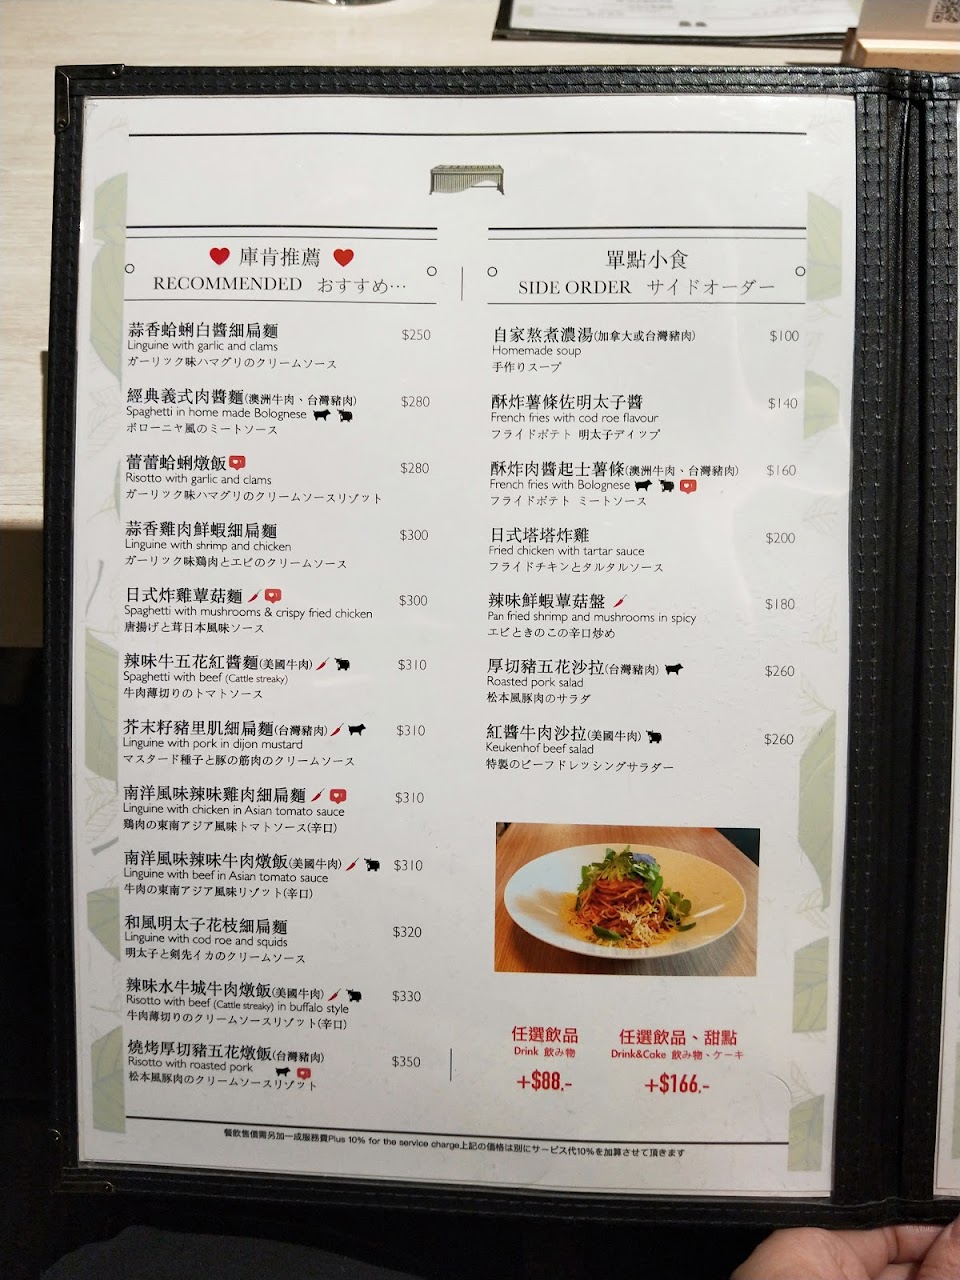 庫肯推薦
RECOMMENDED おすすめ…
蒜香蛤蜊白醬細扁麵 $250
Linguine with garlic and clams
ガーリック味ハマグリのクリームソース
經典義式肉醬麵(澳洲牛肉、台灣豬肉) $280
Spaghetti in home made Bolognese
ボローニャ風のミートソース
蕾蕾蛤蜊燉飯 $280
Risotto with garlic and clams
ガーリック味ハマグリのクリームソースリゾット
蒜香雞肉鮮蝦細扁麵 $300
Linguine with shrimp and chicken
ガーリック味鶏肉とエビのクリームソース
日式炸雞蕈菇麵 $300
Spaghetti with mushrooms & crispy fried chicken
唐揚げと茸日本風味ソース
辣味牛五花紅醬麵(美國牛肉) $310
Spaghetti with beef (Cattle streaky)
牛肉薄切りのトマトソース
芥末籽豬里肌細扁麵(台灣豬肉) $310
Linguine with pork in dijon mustard
マスタード種子と豚の筋肉のクリームソース
南洋風味辣味雞肉細扁麵 $310
Linguine with chicken in Asian tomato sauce
鶏肉の東南アジア風味トマトソース(辛口)
南洋風味辣味牛肉燉飯(美國牛肉) $310
Linguine with beef in Asian tomato sauce
牛肉の東南アジア風味リゾット(辛口)
和風明太子花枝細扁麵 $320
Linguine with cod roe and squids
明太子と剣先イカのクリームソース
辣味水牛城牛肉燉飯(美國牛肉) $330
Risotto with beef (Cattle streaky) in buffalo style
牛肉薄切りのクリームソースリゾット(辛口)
燒烤厚切豬五花燉飯(台灣豬肉) $350
Risotto with roasted pork
松本風豚肉のクリームソースリゾット
單點小食
SIDE ORDER サイドオーダー
自家熬煮濃湯(加拿大或台灣豬肉) $100
Homemade soup
手作りスープ
酥炸薯條佐明太子醬 $140
French fries with cod roe flavour
フライドポテト 明太子ディップ
酥炸肉醬起士薯條(澳洲牛肉、台灣豬肉) $160
French fries with Bolognese
フライドポテト ミートソース
日式塔塔炸雞 $200
Fried chicken with tartar sauce
フライドチキンとタルタルソース
辣味鮮蝦蕈菇盤 $180
Pan fried shrimp and mushrooms in spicy
エビときのこの辛口炒め
厚切豬五花沙拉(台灣豬肉) $260
Roasted pork salad
松本風豚肉のサラダ
紅醬牛肉沙拉(美國牛肉) $260
Keukenhof beef salad
特製のビーフドレッシングサラダー
任選飲品
Drink 飲み物
+$88.-
任選飲品、甜點
Drink&Coke 飲み物、ケーキ
+$166.-
餐飲售價需另加一成服務費Plus 10% for the service charge上記の価格は別にサービス代10%を加算させて頂きます